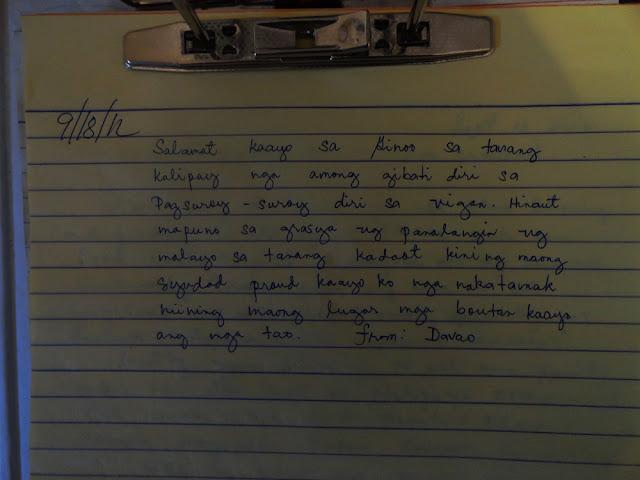 9/18/12
Salamat kaayo sa Ginoo sa tanang
kalipay nga among gibati diri sa
Pagsuroy - suroy diri sa vigan. Hinaut
mapuno sa grasya ug panalangin ug
malayo sa tanang kadaot kini ng maong
syudad proud kaayo ko nga nakatamak
niining maong lugar mga boutan kaayo
ang mga tao. from: Davao